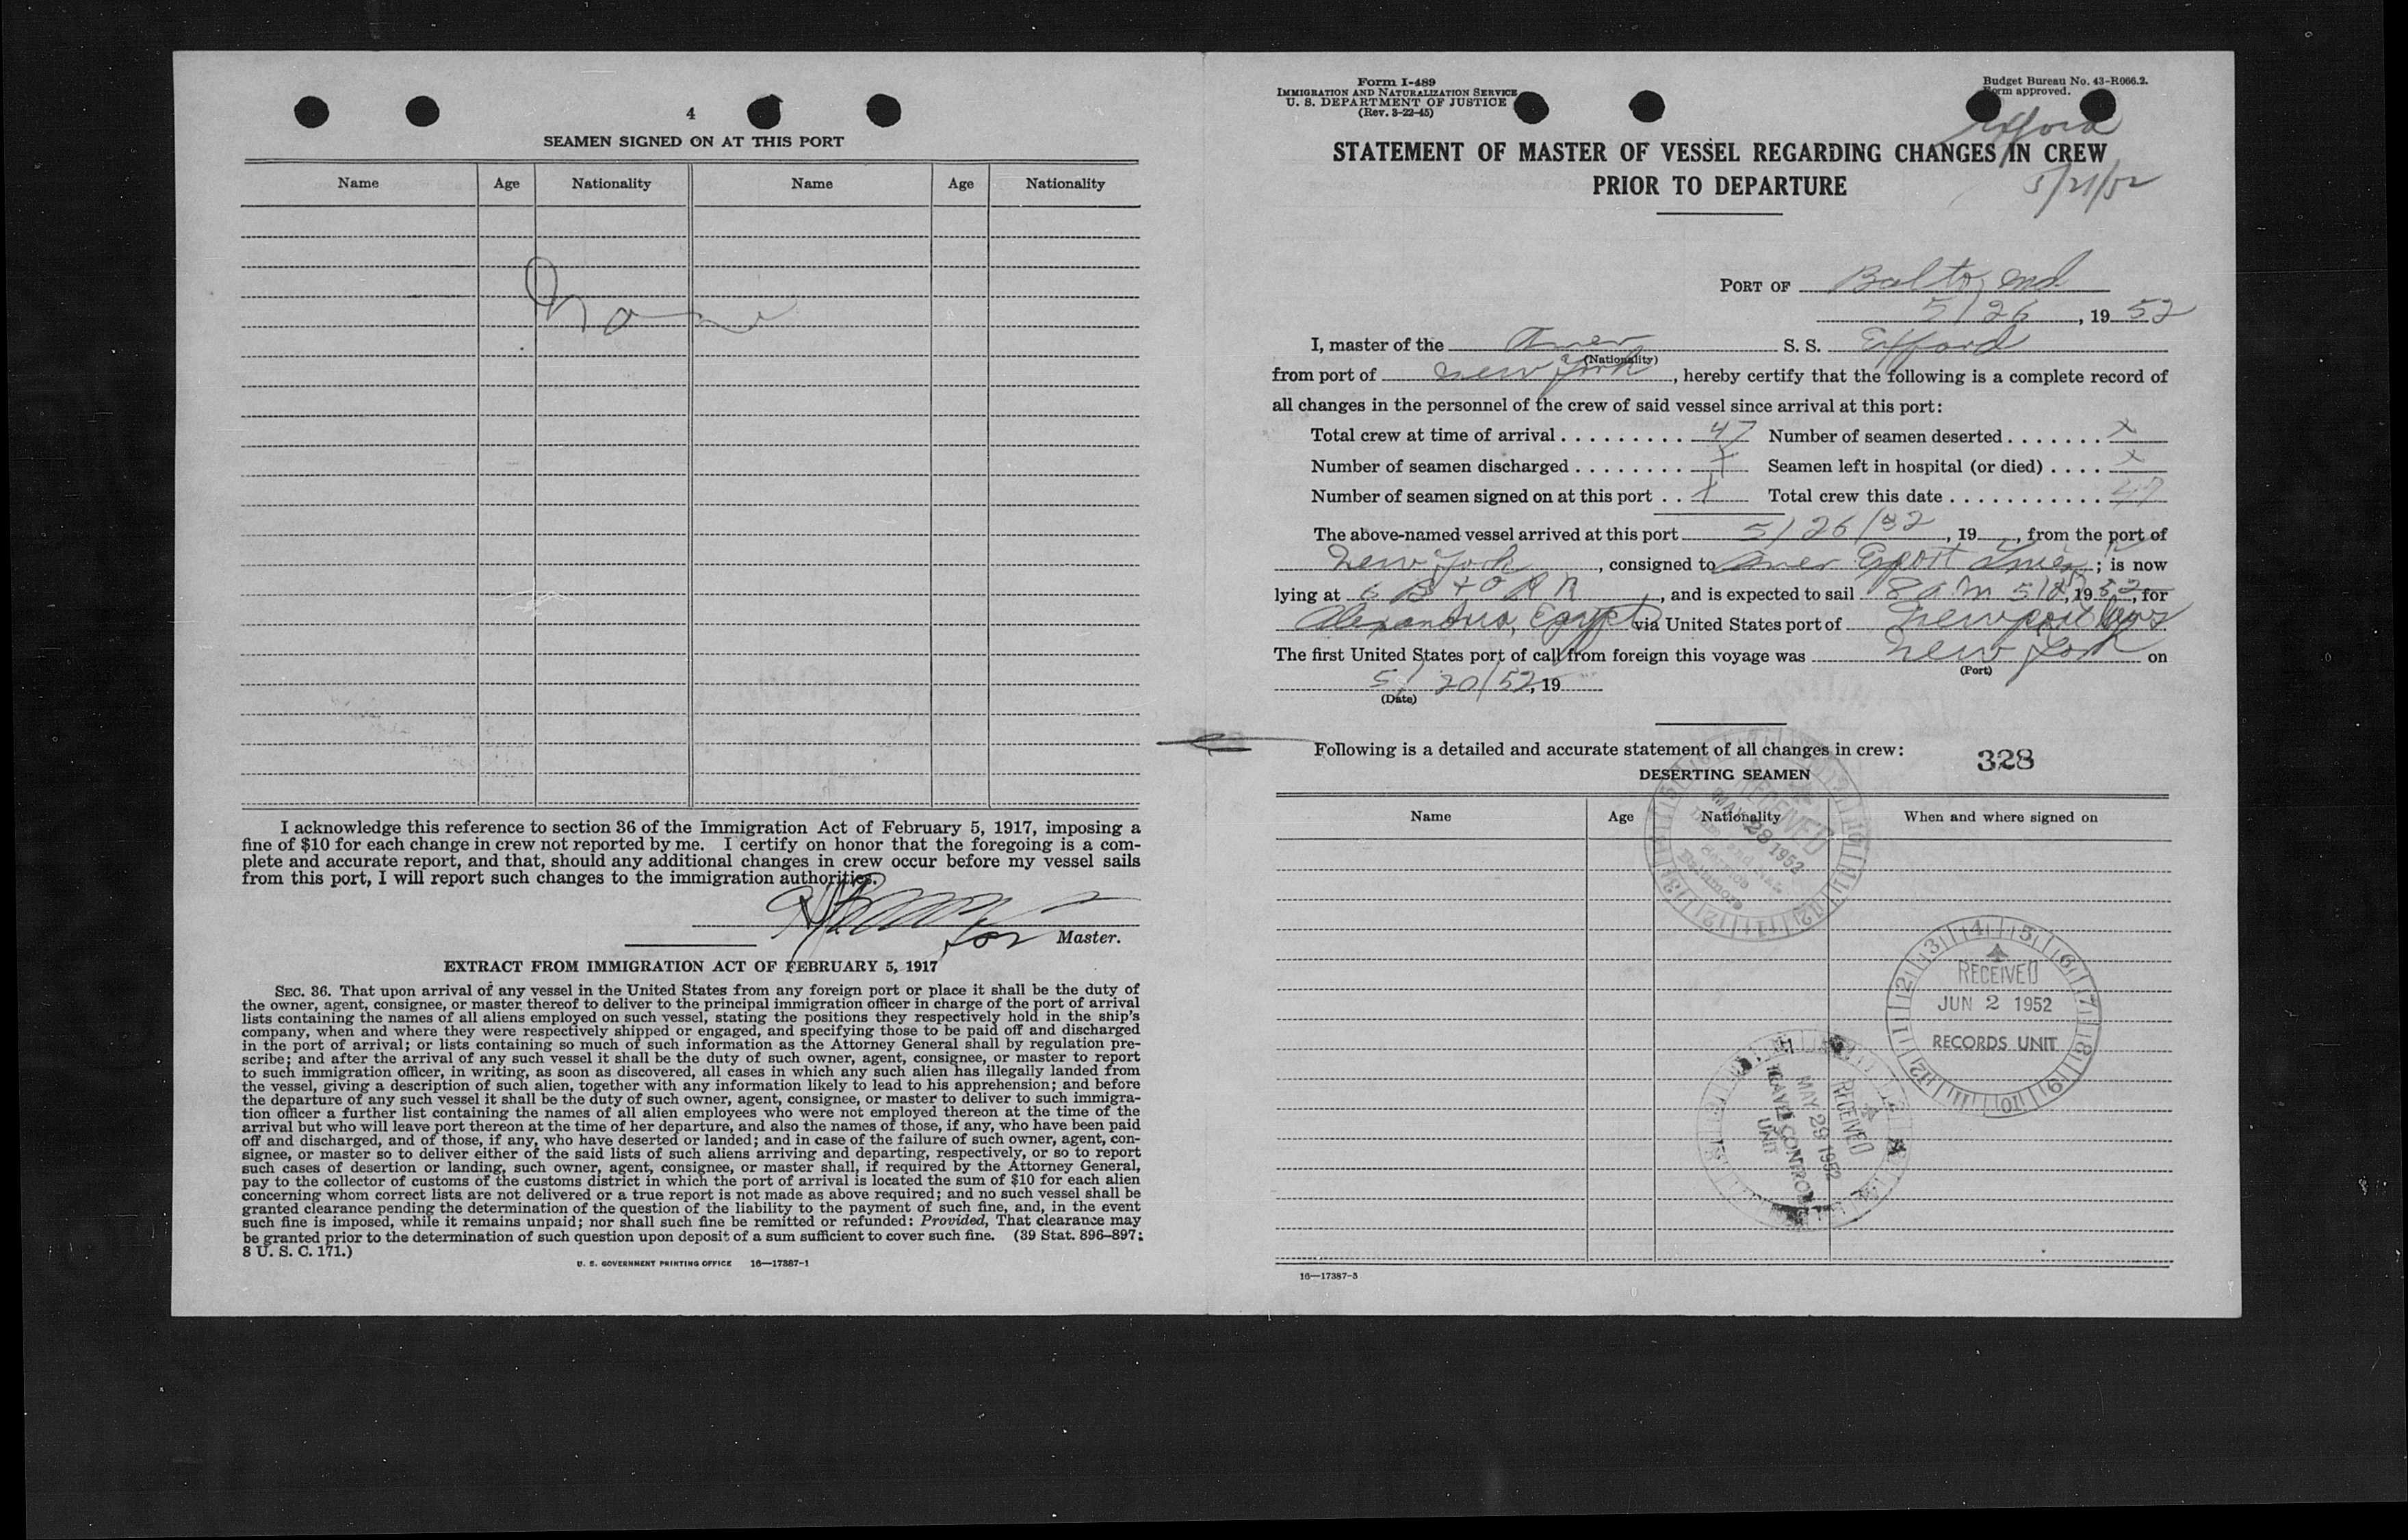 4
SEAMEN SIGNED ON AT THIS PORT
Name Age Nationality Name Age Nationality
None
I acknowledge this reference to section 36 of the Immigration Act of February 5, 1917, imposing a
fine of $10 for each change in crew not reported by me. I certify on honor that the foregoing is a com-
plete and accurate report, and that, should any additional changes in crew occur before my vessel sails
from this port, I will report such changes to the immigration authorities.
for Master.
EXTRACT FROM IMMIGRATION ACT OF FEBRUARY 5, 1917
SEC. 36. That upon arrival of any vessel in the United States from any foreign port or place it shall be the duty of
the owner, agent, consignee, or master thereof to deliver to the principal immigration officer in charge of the port of arrival
lists containing the names of all aliens employed on such vessel, stating the positions they respectively hold in the ship's
company, when and where they were respectively shipped or engaged, and specifying those to be paid off and discharged
in the port of arrival; or lists containing so much of such information as the Attorney General shall by regulation pre-
scribe; and after the arrival of any such vessel it shall be the duty of such owner, agent, consignee, or master to report
to such immigration officer, in writing, as soon as discovered, all cases in which any such alien has illegally landed from
the vessel, giving a description of such alien, together with any information likely to lead to his apprehension; and before
the departure of any such vessel it shall be the duty of such owner, agent, consignee, or master to deliver to such immigra-
tion officer a further list containing the names of all alien employees who were not employed thereon at the time of the
arrival but who will leave port thereon at the time of her departure, and also the names of those, if any, who have been paid
off and discharged, and of those, if any, who have deserted or landed; and in case of the failure of such owner, agent, con-
signee, or master so to deliver either of the said lists of such aliens arriving and departing, respectively, or so to report
such cases of desertion or landing, such owner, agent, consignee, or master shall, if required by the Attorney General,
pay to the collector of customs of the customs district in which the port of arrival is located the sum of $10 for each alien
concerning whom correct lists are not delivered or a true report is not made as above required; and no such vessel shall be
granted clearance pending the determination of the question of the liability to the payment of such fine, and, in the event
such fine is imposed, while it remains unpaid; nor shall such fine be remitted or refunded: Provided, That clearance may
be granted prior to the determination of such question upon deposit of a sum sufficient to cover such fine. (39 Stat. 896–897;
8 U. S. C. 171.)
U. S. GOVERNMENT PRINTING OFFICE 16—17387-1
Form I-489
IMMIGRATION AND NATURALIZATION SERVICE
U. S. DEPARTMENT OF JUSTICE
(Rev. 3-22-45)
Budget Bureau No. 43-R066.2.
Form approved.
Exford
STATEMENT OF MASTER OF VESSEL REGARDING CHANGES IN CREW
PRIOR TO DEPARTURE
5/21/52
PORT OF Balto, Md.
5/26, 19 52
I, master of the Amer S. S. Exford
(Nationality)
from port of New York, hereby certify that the following is a complete record of
all changes in the personnel of the crew of said vessel since arrival at this port:
Total crew at time of arrival . . . . . . . . . . 47 Number of seamen deserted . . . . . . . X
Number of seamen discharged . . . . . . . . X Seamen left in hospital (or died) . . . . X
Number of seamen signed on at this port . . X Total crew this date . . . . . . . . . . . . 47
The above-named vessel arrived at this port 5/26/52, 19, from the port of
New York, consigned to Amer Export Lines; is now
lying at 6 B + O R R, and is expected to sail 8 AM 5/28, 19 52, for
Alexandria, Egypt via United States port of Newport News
The first United States port of call from foreign this voyage was New York on
(Port)
5/20/52, 19
(Date)
Following is a detailed and accurate statement of all changes in crew:
328
DESERTING SEAMEN
Name Age Nationality When and where signed on
RECEIVED
MAY 28 1952
Baltimore
RECEIVED
JUN 2 1952
RECORDS UNIT
RECEIVED
MAY 29 1952
TRAVEL CONTROL
UNIT
16—17387-5